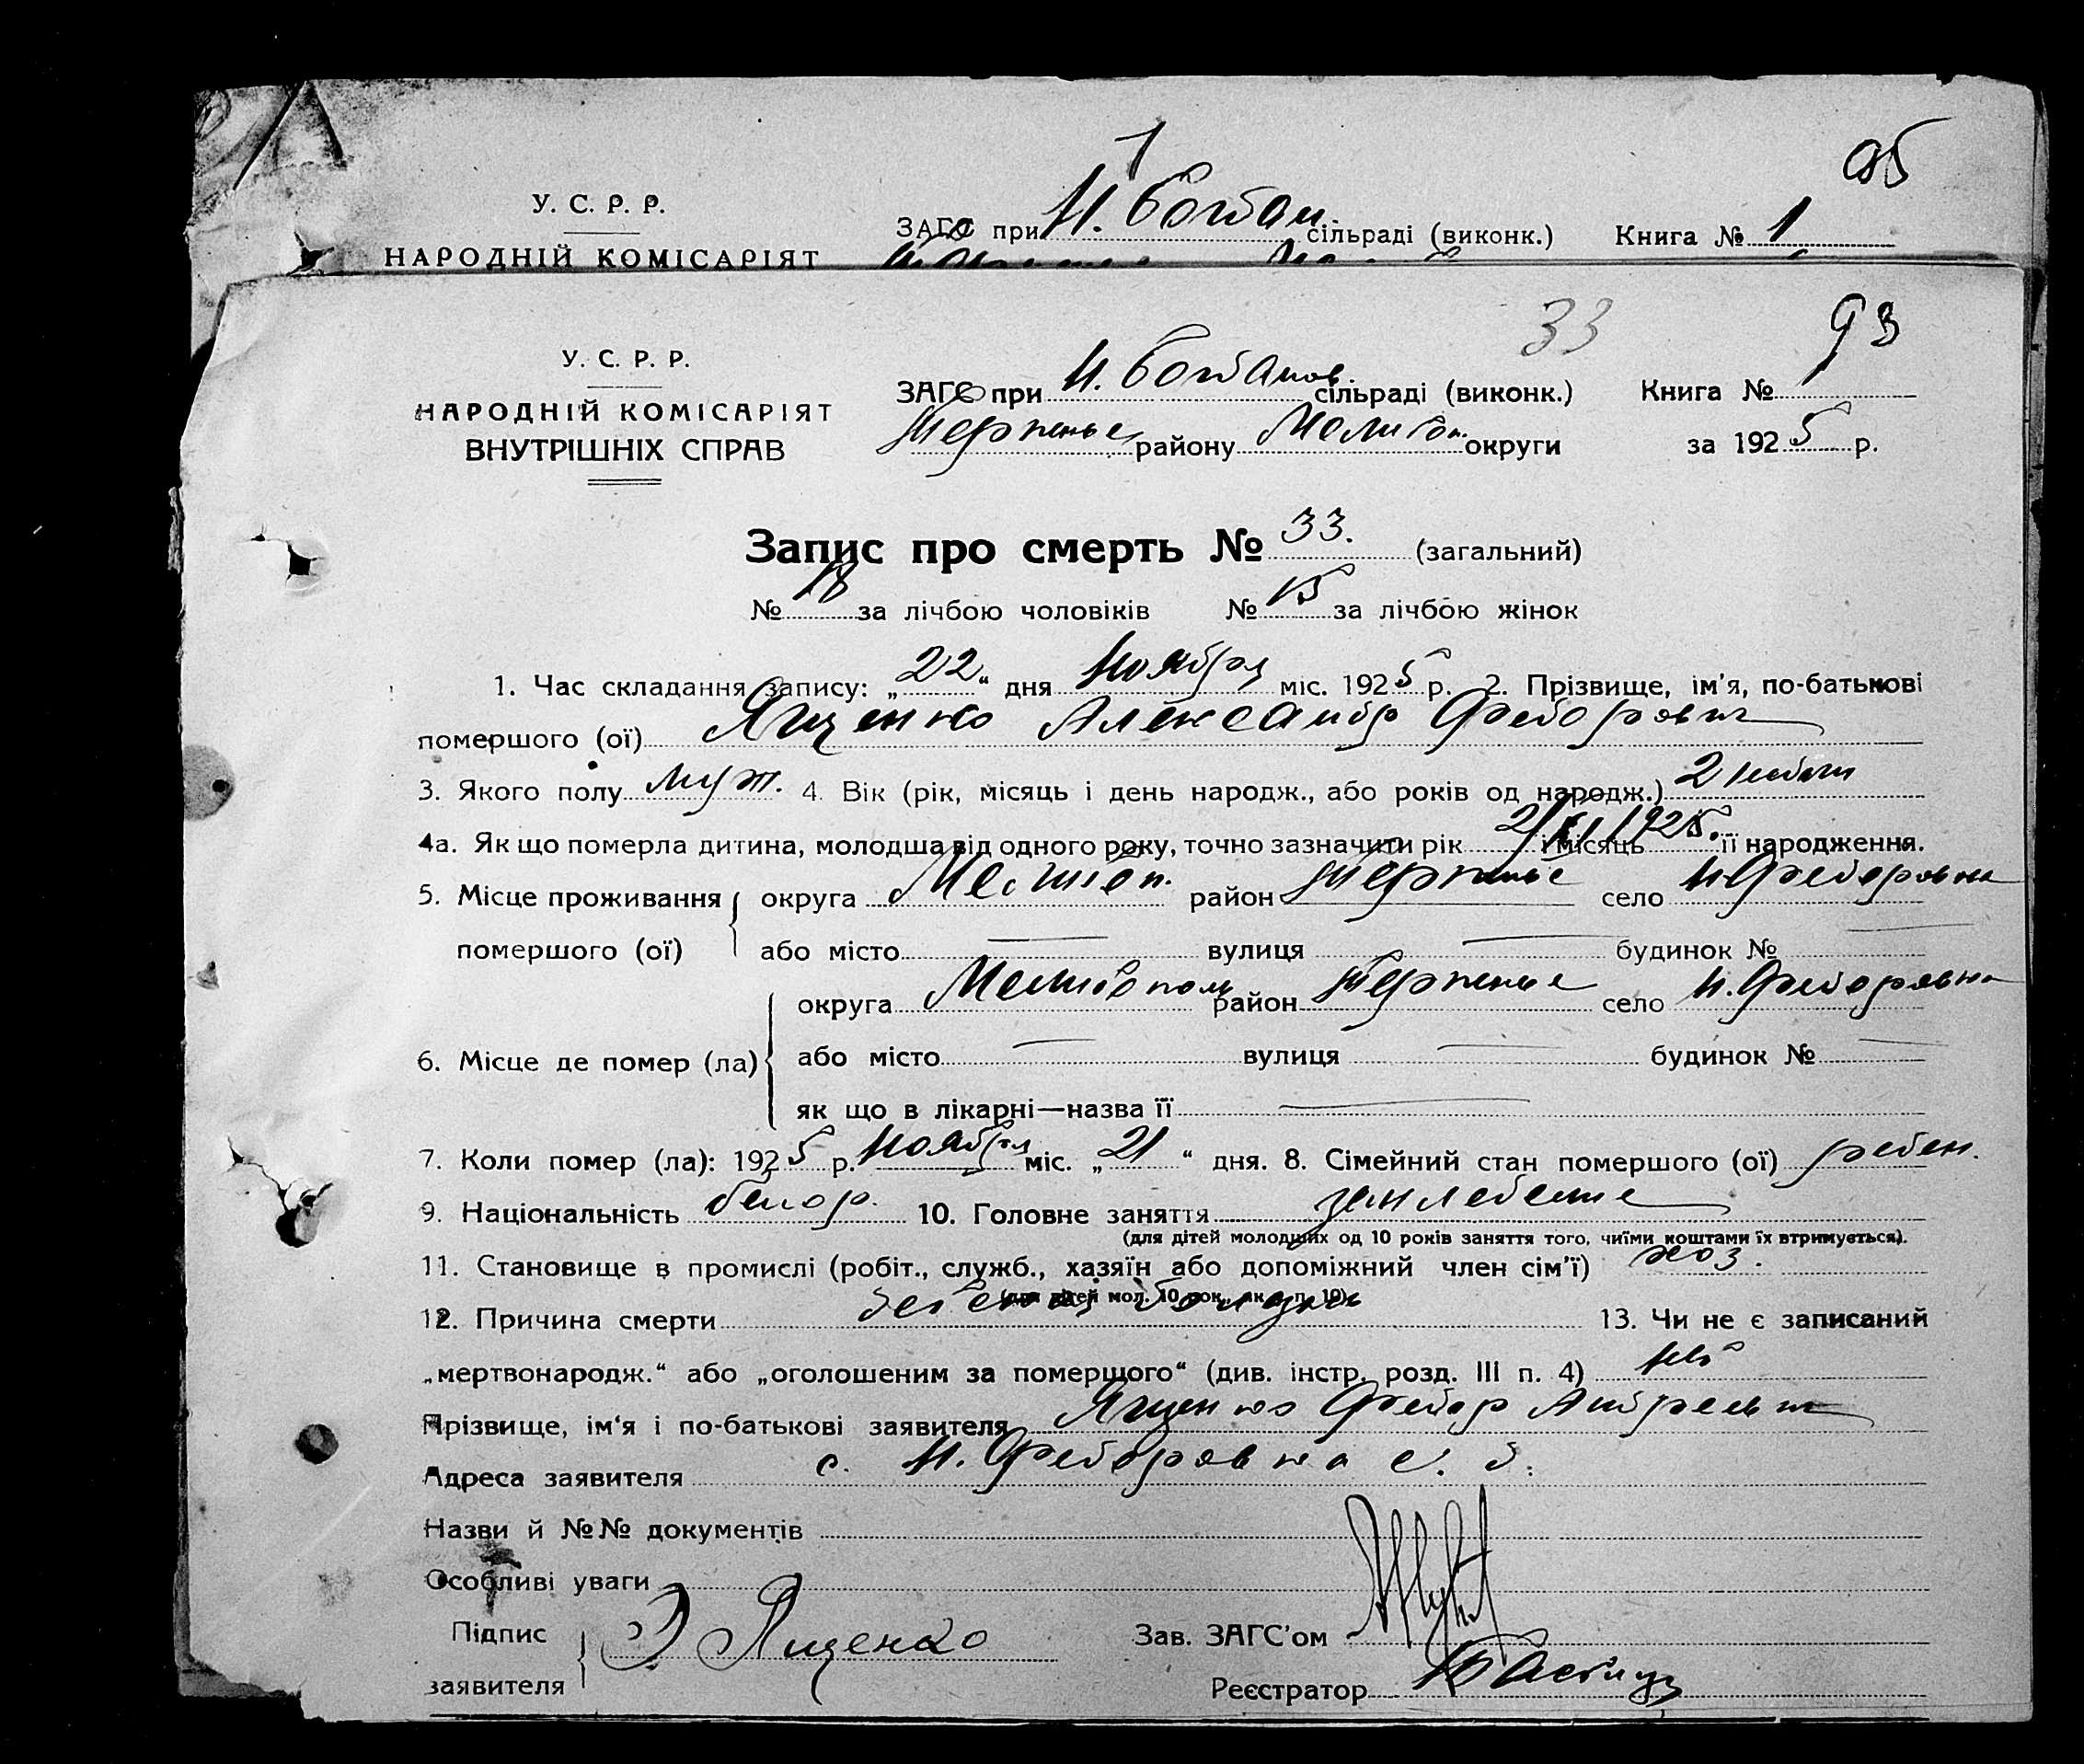 95
1
У. С. Р. Р.
ЗАГС при Н. Богдан. сільраді (виконк.) Книга № 1
НАРОДНІЙ КОМІСАРІЯТ
33 93
У. С. Р. Р.
ЗАГС при Н. Богданов. сільраді (виконк.) Книга №
НАРОДНІЙ КОМІСАРІЯТ
Терпенье району Мелитоп. округи за 1925 р.
ВНУТРІШНІХ СПРАВ
Запис про смерть № 33. (загальний)
№ 18 за лічбою чоловіків № 15 за лічбою жінок
1. Час складання запису: „22“ дня Ноября міс. 1925 р. 2. Прізвище, ім’я, по-батькові
помершого (ої) Ященко Александр Федорович
3. Якого полу муж. 4. Вік (рік, місяць і день народж., або років од народж.) 2 недели
4а. Як що померла дитина, молодша від одного року, точно зазначити рік і місяць її народження.
5. Місце проживання округа Мелитоп. район Терпенье село Н Федоровка
помершого (ої) або місто — вулиця — будинок № —
округа Мелитополь район Терпенье село Н. Федоровка
6. Місце де помер (ла) або місто — вулиця — будинок № —
як що в лікарні—назва її —
7. Коли помер (ла): 1925 р. Ноября міс. „21“ дня. 8. Сімейний стан помершого (ої) ребен.
9. Національність белор. 10. Головне заняття земледелие
(для дітей молодших од 10 років заняття того, чиїми коштами їх втримується).
11. Становище в промислі (робіт., служб., хазяїн або допоміжний член сім’ї) хоз.
(для дітей мол. 10 рок., як в п. 10)
12. Причина смерти 13. Чи не є записаний
„мертвонародж.“ або „оголошеним за помершого“ (див. інстр. розд. III п. 4) нет
Прізвище, ім‘я і по-батькові заявителя Ященко Федор Андреевич
Адреса заявителя с. Н. Федоровка
Назви й №№ документів
Особливі уваги
Підпис Ященко Зав. ЗАГС’ом
заявителя Реєстратор